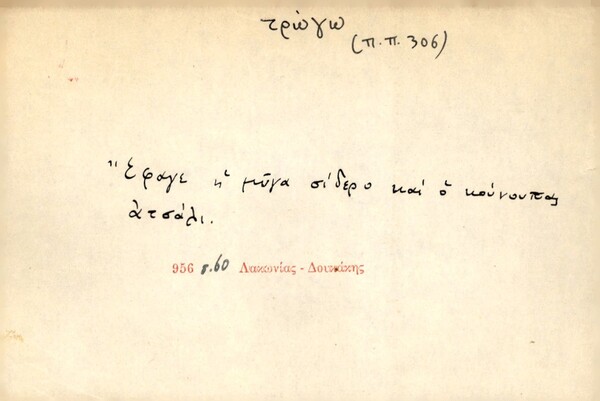 τρώγω
(π.π. 306)
"Εφαγε ἡ μῦγα σίδερο καί ὁ κούνουπας
ἀτσάλι.
956 σ.60 Λακωνίας - Δουκάκης